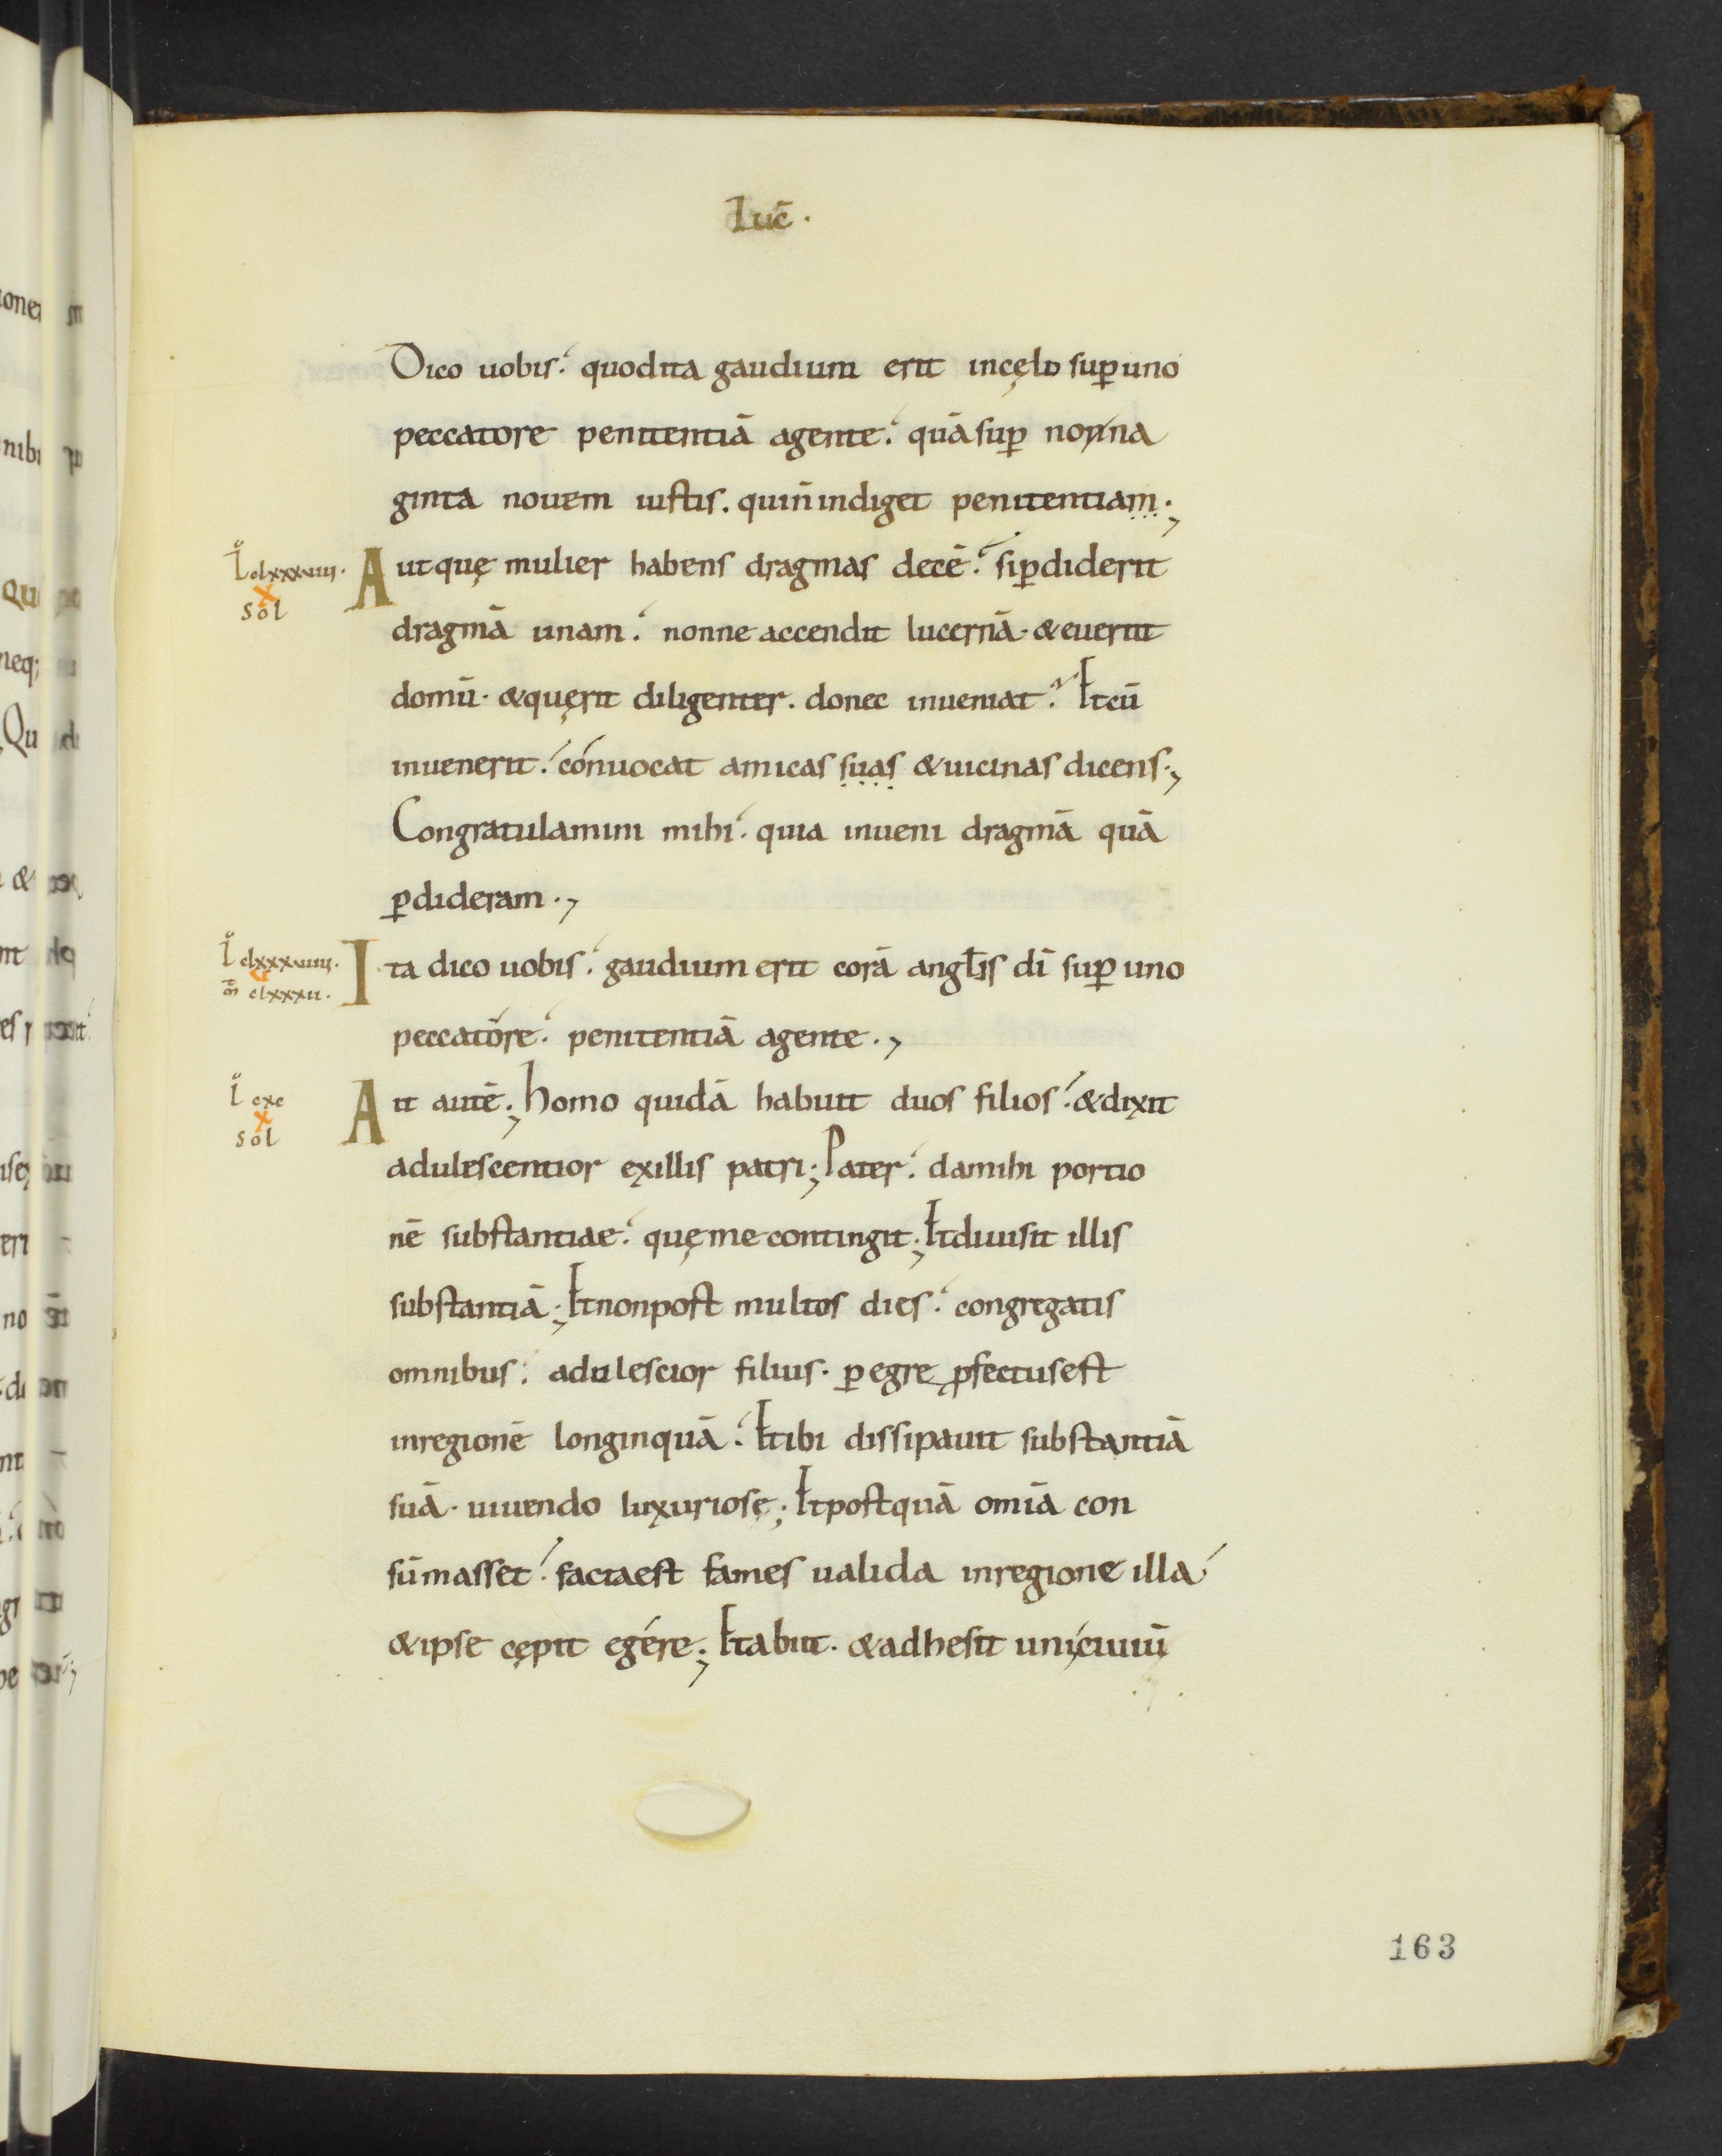 Luc̄.
Dico uobis. quodita gaudium erit incęlo suꝑuno
peccatore penitentiā agente. quāsuꝑ nonna
ginta nouem iustis. quin̄indiget penitentiam.,
L̊ clxxxviii.
X
sol
Autquę mulier habens dragmas decē. siꝑdiderit
dragmā unam. nonne accendit lucernā. &euertit
domū. &quęrit diligenter. donec inueniat? Etcū
inuenerit. conuocat amicas suas &uicinas dicens.,
Congratulamini mihi. quia inueni dragmā quā
ꝑdideram.,
L̊ clxxxviiii.
m̄ clxxxii.
Ita dico uobis. gaudium erit corā angl̄is dī suꝑ uno
peccatore. penitentiā agente.,
L̊ cxc
X
sol
Ait autē; homo quidā habuit duos filios. &dixit
adulescentior exillis patri; Pater. damihi portio
nē substantiae. quęmecontingit; Etdiuisit illis
substantiā; Etnonpost multos dies. congregatis
omnibus. adulescior filius. ꝑegre ꝓfectusest
inregionē longinquā. Etibi dissipauit substantiā
suā. uiuendo luxuriose; Etpostquā omīa con
sūmasset. factaest fames ualida inregione illa
&ipse cępit egére; Etabiit. &adhesit unicuiuū
163